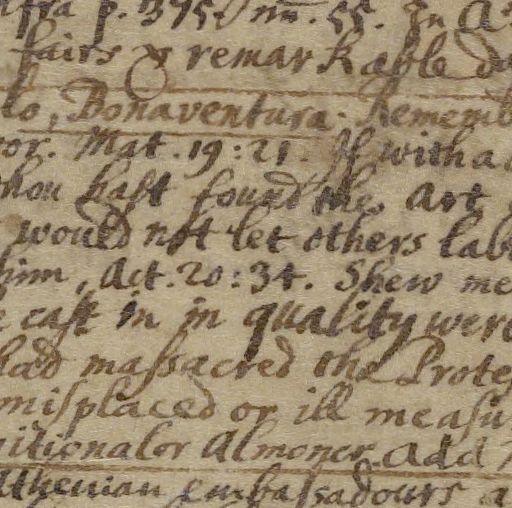 p. 395. nu. 55. In
fairs & remarkable
lo, Bonaventura. Rememb
or. Mat. 19:21. If with a
thou hast found the Art
would not let others lab
him, Act. 20:34. Shew me
cast in in quality were
had massacred the Protes
misplaced or ill measu
itional or Almoner. Add
Athenian embassadours a